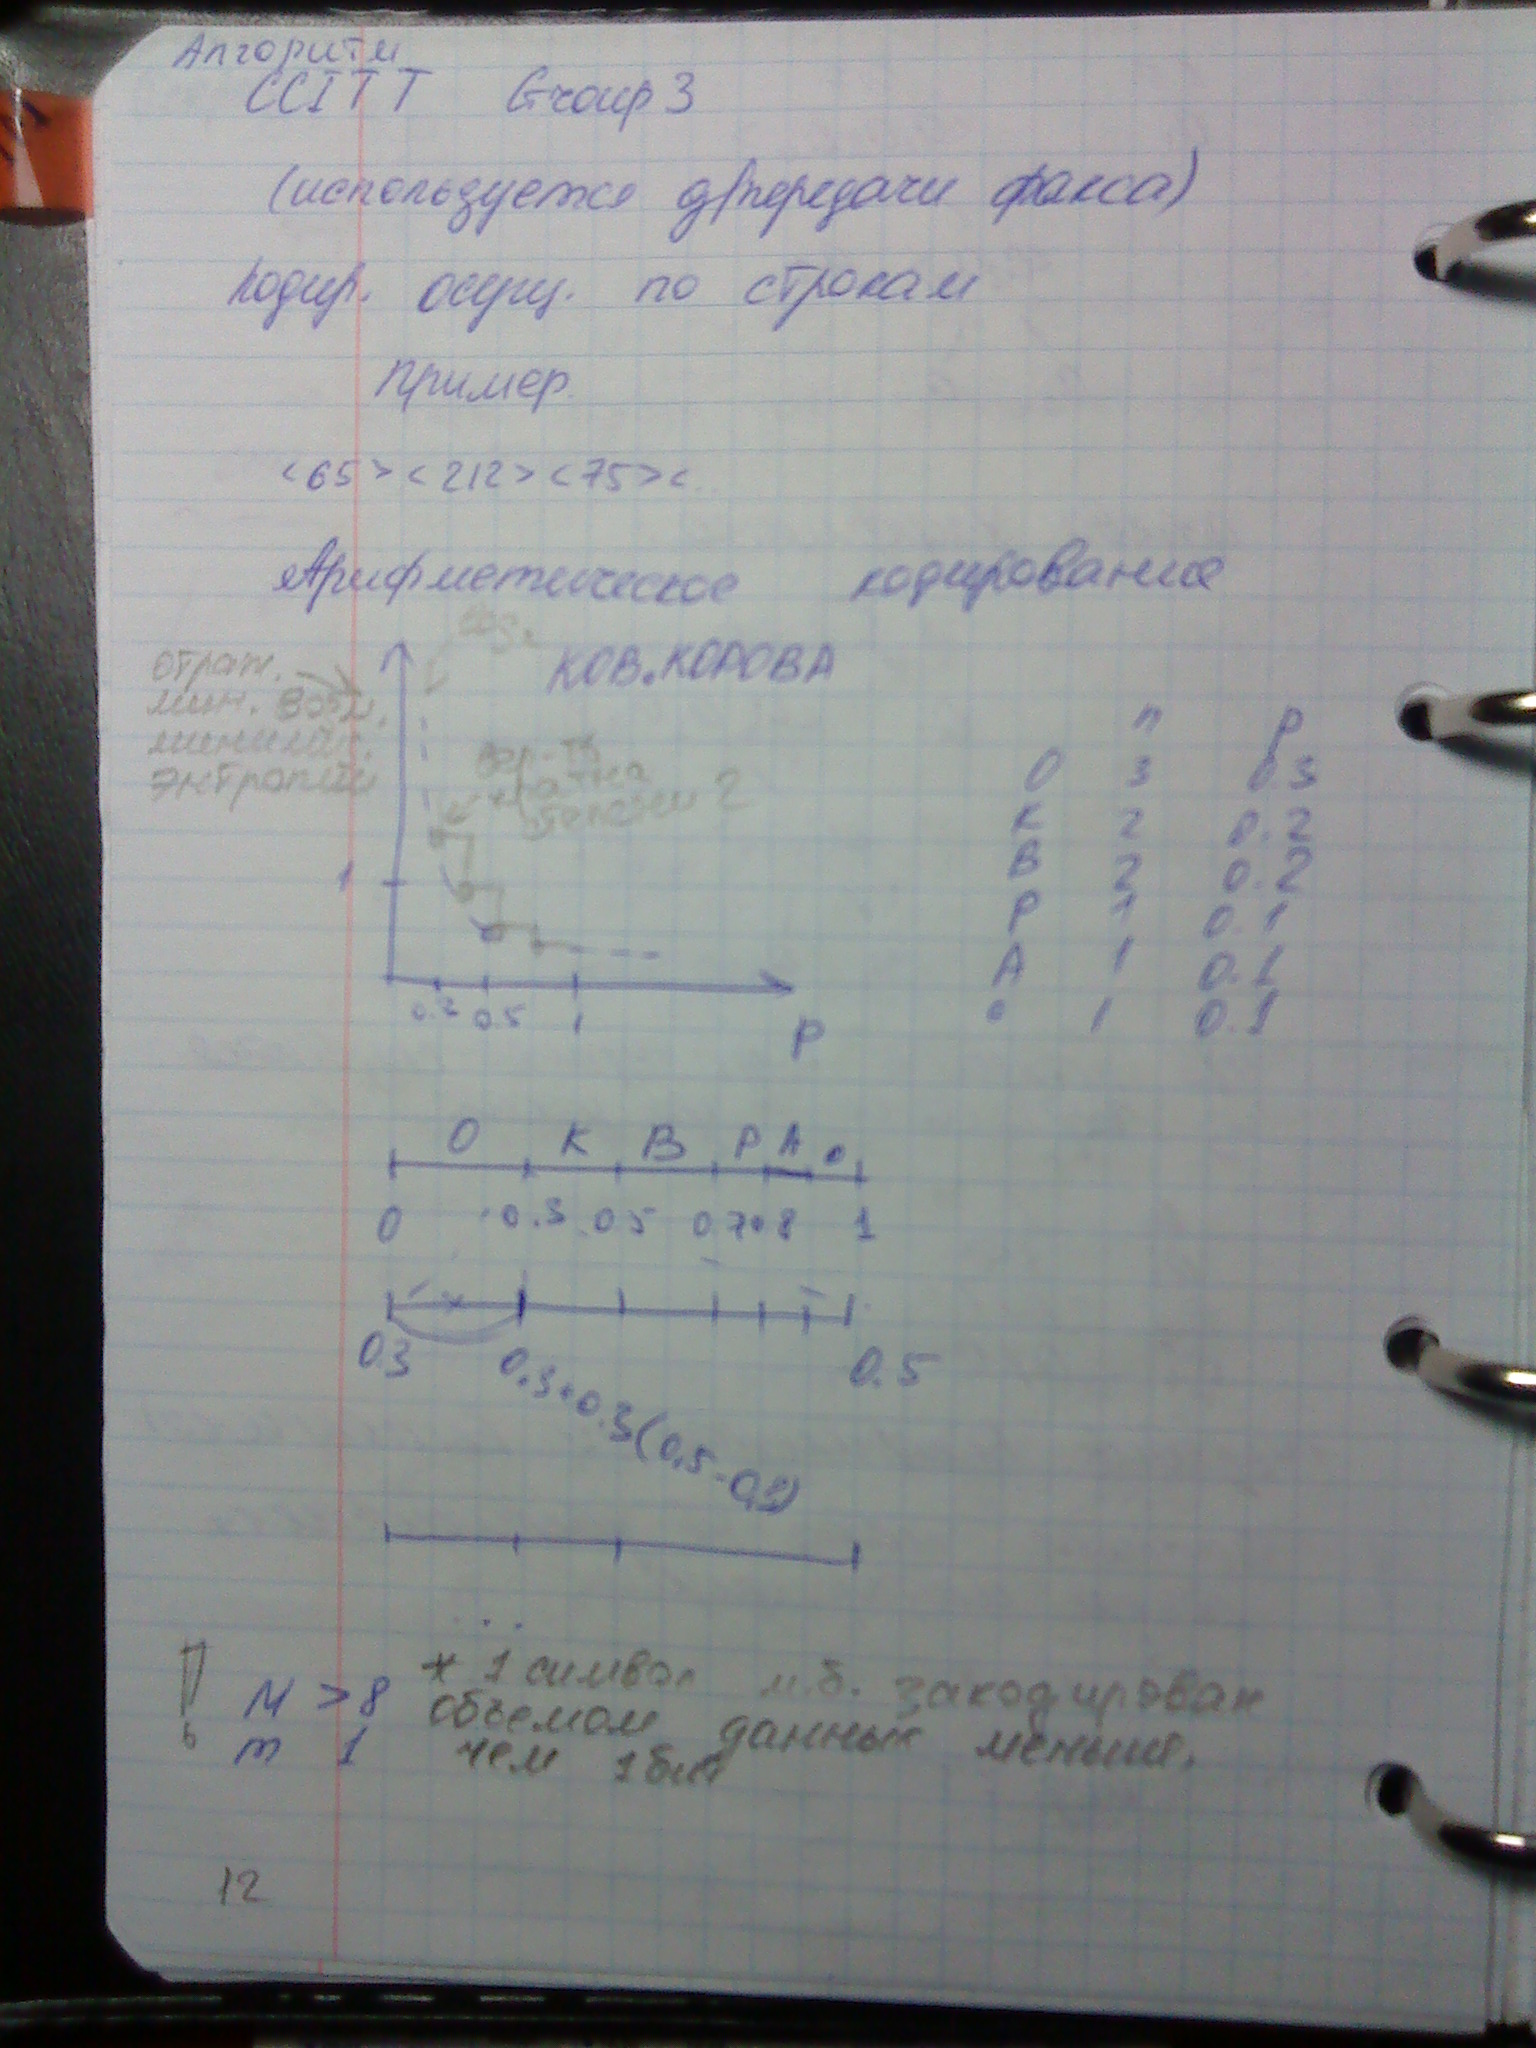 Алгоритм
CCITT Group 3
(используется д/передачи факса)
Кодир. осущ. по строкам
Пример
<65><212><75><..
Арифметическое кодирование
КОВ.КОРОВА
отраж.
мин.
энтропии
вер-ть
кратна
степени 2
1
0.5 1
P
n p
О 3 0.3
К 2 0.2
В 2 0.2
Р 1 0.1
А 1 0.1
. 1 0.1
О К В Р А .
0 0.3 0.5 0.7 0.8 1
0.3 0.3+0.3(0.5-0.3) 0.5
...
! M > 8
m 1
* 1 символ м.б. закодирован
объемом данных меньше,
чем 1 бит
12